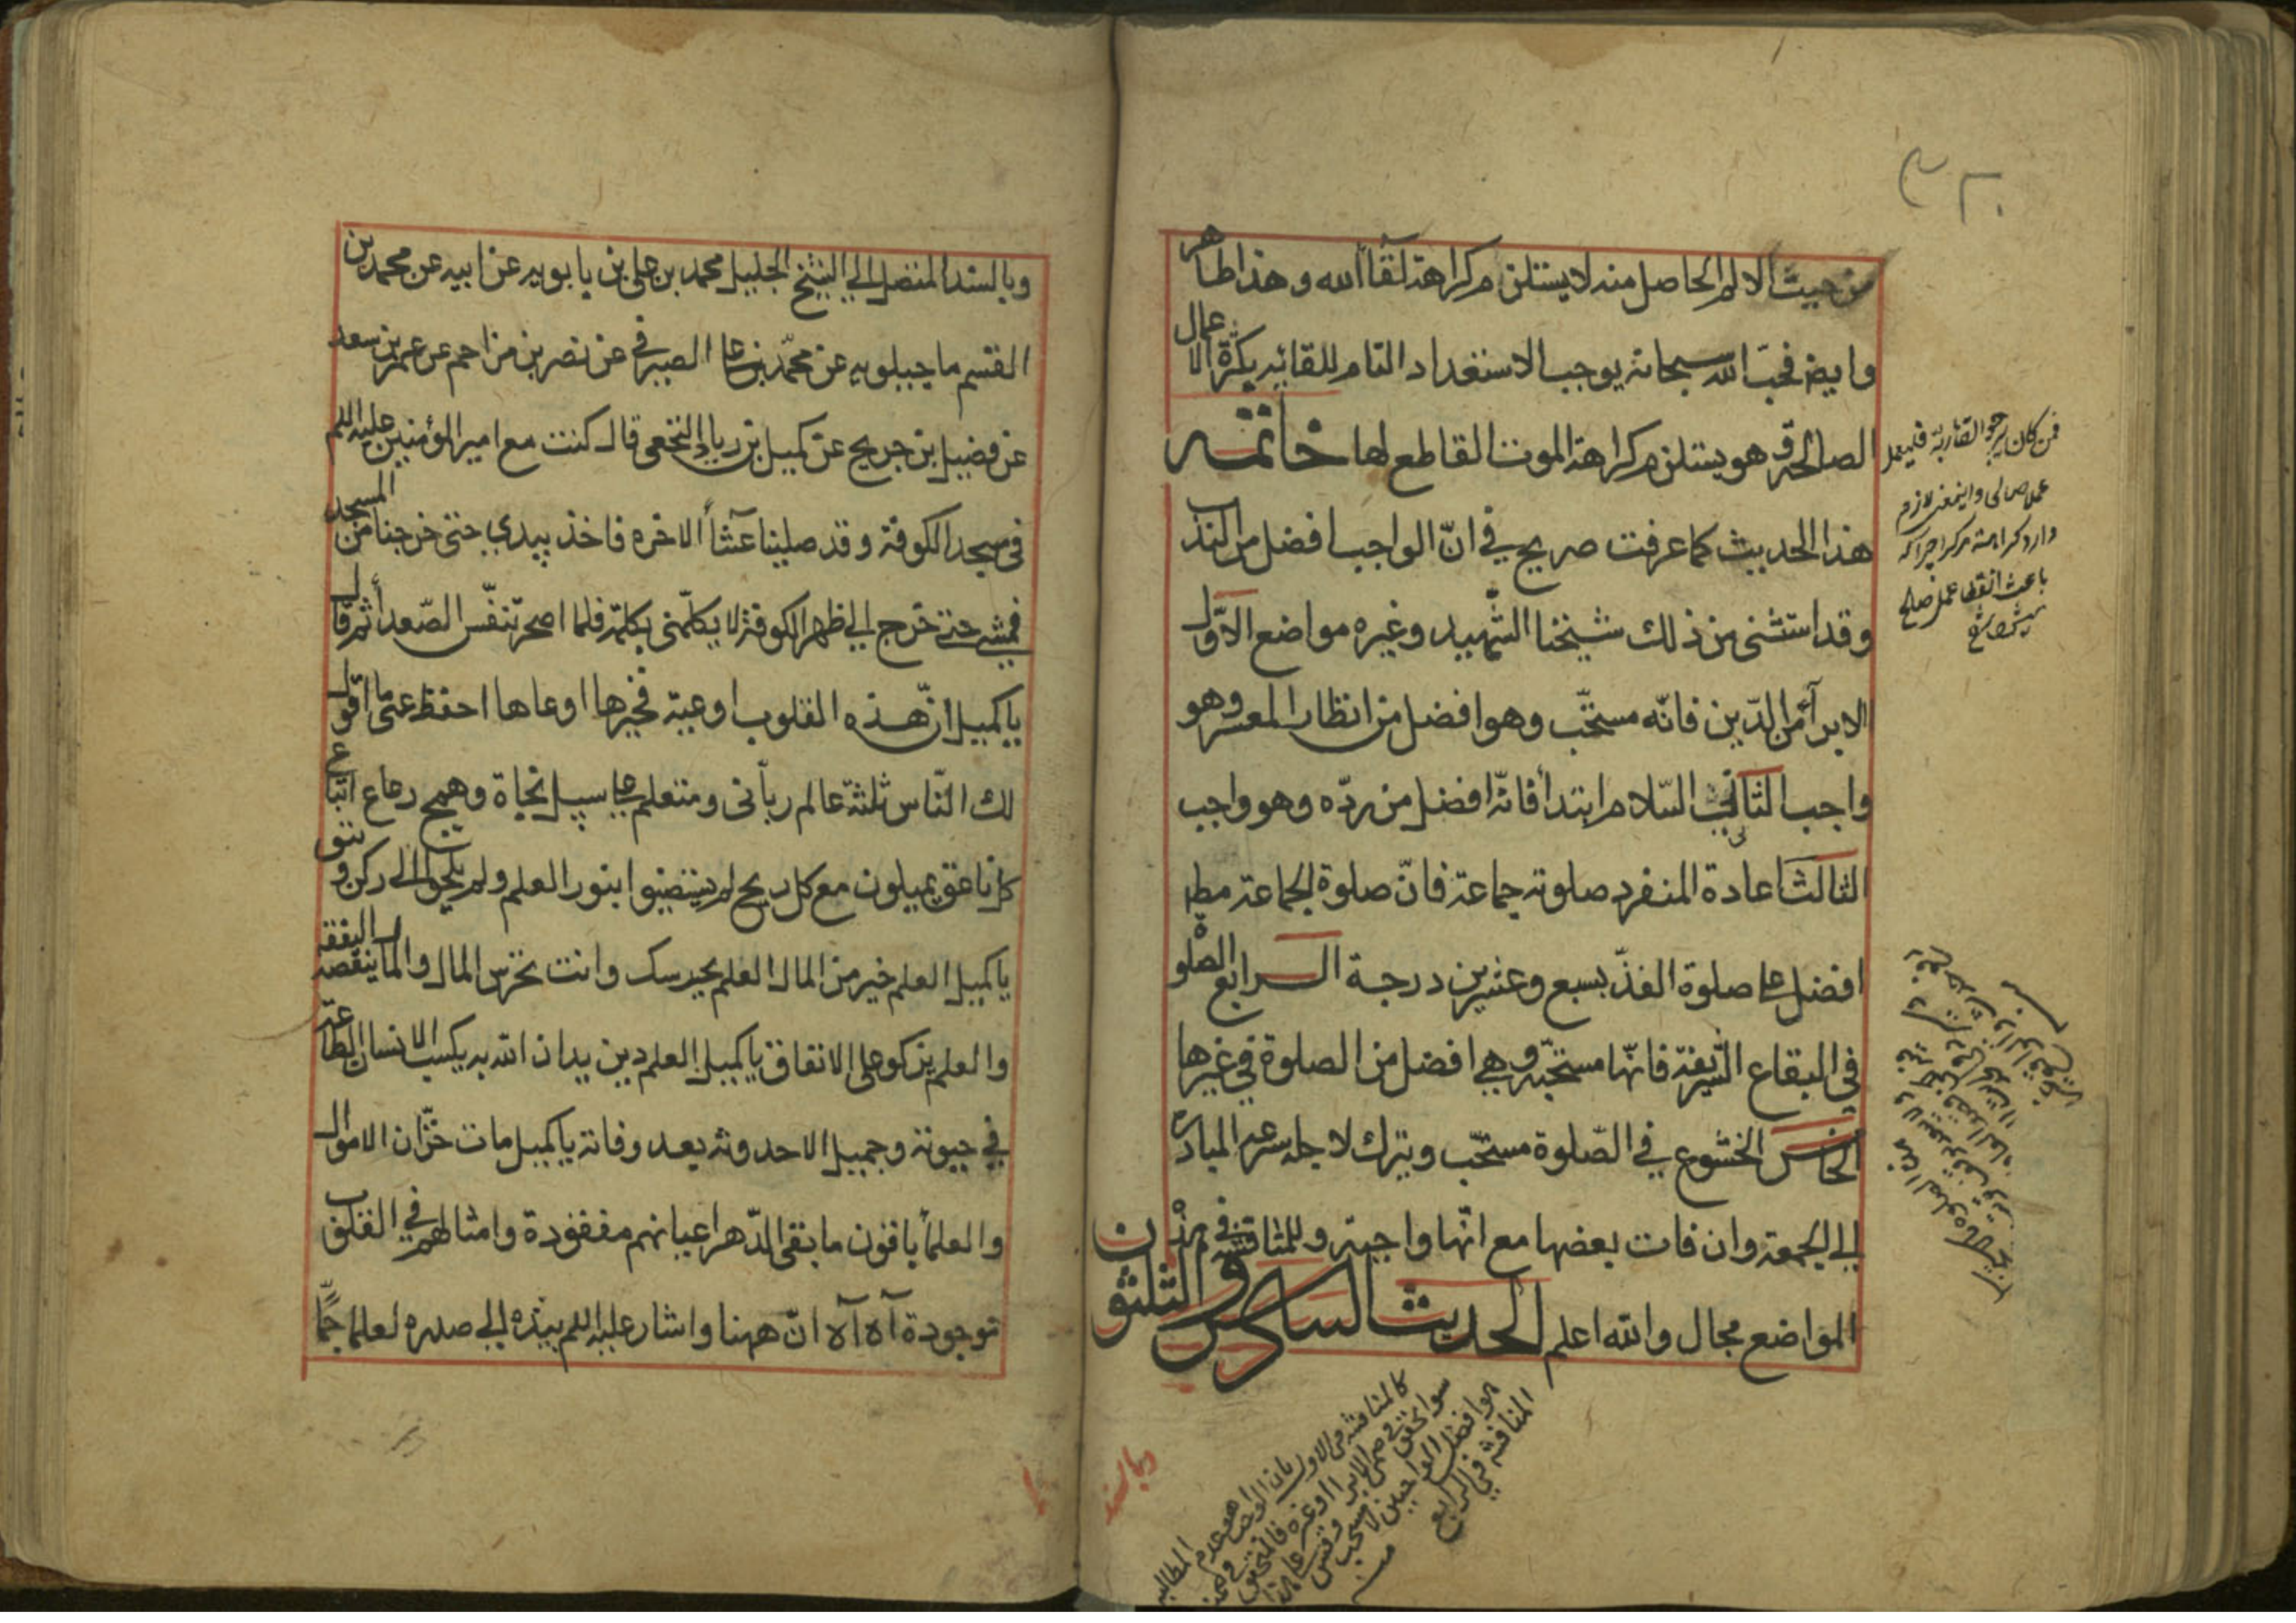 ٣٢٠
من حيث الالم الحاصل منه لا يستلزم كراهة لقآء الله وهذا ظاهر
وايضا فحبّ الله سبحانه يوجب الاستعداد التام للقائه بكثرة الاعمال
الصالحة وهو يستلزم كراهة الموت القاطع لها خاتمه
هذا الحديث كما عرفت صريح في انّ الواجب افضل من الندب
وقد استثنى من ذلك شيخنا الشّهيد وغيره مواضع الاوّل
الابرآء من الدّين فانّه مستحبّ وهو افضل من انظار المعسر وهو
واجب الثاني السّلام ابتداء فانّه افضل من ردّه وهو واجب
الثالث اعادة المنفرد صلوته جماعة فانّ صلوة الجماعة مط
افضل على صلوة الفذّ بسبع وعشرين درجة الرابع الصلوة
في البقاع الشّريفة فانّها مستحبّة وهي افضل من الصلوة في غيرها
الخامس الخشوع في الصّلوة مستحبّ ويترك لاجله سرعة المبادرة
الى الجمعة وان فات بعضها مع انّها واجبة وللمناقشة في هذه
المواضع مجال والله اعلم الحديث السادس والثلثون
فمن كان يرجو لقاء ربه فليعمل
عملا صالحا
باعث انقطاع عمل صالح
المناقشة في الرابع
وبالسند
وبالسند المتصل الى الشيخ الجليل محمد بن علي بن بابويه عن ابيه عن محمد بن
القسم ماجيلويه عن محمّد بن على الصيرفي عن نصر بن مزاحم عن عمر بن سعد
عن فضيل بن جريح عن كميل بن زياد النخعي قال كنت مع امير المؤمنين عليه السلم
في مسجد الكوفة وقد صلينا عشآء الاخره فاخذ بيدي حتى خرجنا من المسجد
فمشى حتى خرج الى ظهر الكوفة لا يكلّمنى بكلمة فلما اصحر تنفّس الصّعداء ثم قال
يا كميل انّ هذه القلوب اوعية فخيرها اوعاها احفظ عنى ما اقول
لك النّاس ثلثة عالم ربّانى ومتعلم على سبيل نجاة وهمج رعاع اتباع
كل ناعق يميلون مع كل ريح لم يستضيئوا بنور العلم ولم يلجئوا الى ركن وثيق
يا كميل العلم خير من المال العلم يحرسك وانت تحرس المال والمال ينقصه النفقة
والعلم يزكو على الانفاق يا كميل العلم دين يدان الله به يكسب الانسان الطاعة
في حيوته وجميل الاحدوثه بعد وفاته يا كميل مات خزّان الاموال
والعلمآء باقون ما بقى الدّهر اعيانهم مفقودة وامثالهم في القلوب
موجودة آه آه انّ ههنا واشار عليه السلم بيده الى صدره لعلما جمًّا